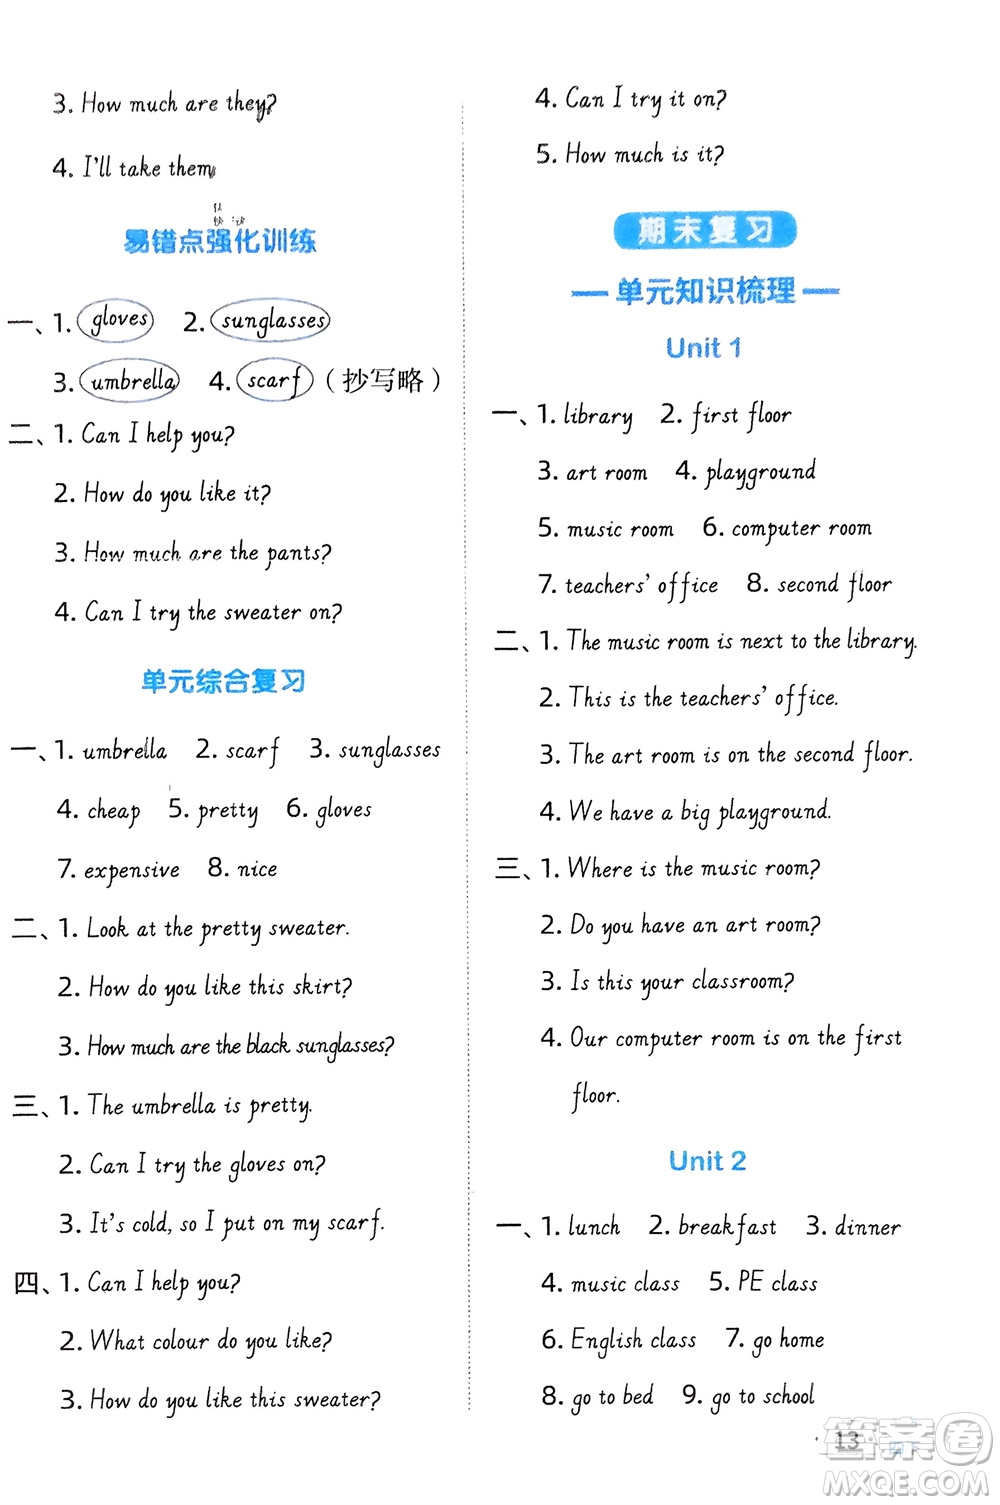 3. How much are they?
4. I'll take them.
易错点强化训练
一、1. gloves 2. sunglasses
3. umbrella 4. scarf（抄写略）
二、1. Can I help you?
2. How do you like it?
3. How much are the pants?
4. Can I try the sweater on?
单元综合复习
一、1. umbrella 2. scarf 3. sunglasses
4. cheap 5. pretty 6. gloves
7. expensive 8. nice
二、1. Look at the pretty sweater.
2. How do you like this skirt?
3. How much are the black sunglasses?
三、1. The umbrella is pretty.
2. Can I try the gloves on?
3. It's cold, so I put on my scarf.
四、1. Can I help you?
2. What colour do you like?
3. How do you like this sweater?
4. Can I try it on?
5. How much is it?
期末复习
单元知识梳理
Unit 1
一、1. library 2. first floor
3. art room 4. playground
5. music room 6. computer room
7. teachers' office 8. second floor
二、1. The music room is next to the library.
2. This is the teachers' office.
3. The art room is on the second floor.
4. We have a big playground.
三、1. Where is the music room?
2. Do you have an art room?
3. Is this your classroom?
4. Our computer room is on the first
floor.
Unit 2
一、1. lunch 2. breakfast 3. dinner
4. music class 5. PE class
6. English class 7. go home
8. go to bed 9. go to school
13
答案卷
MXQE.COM